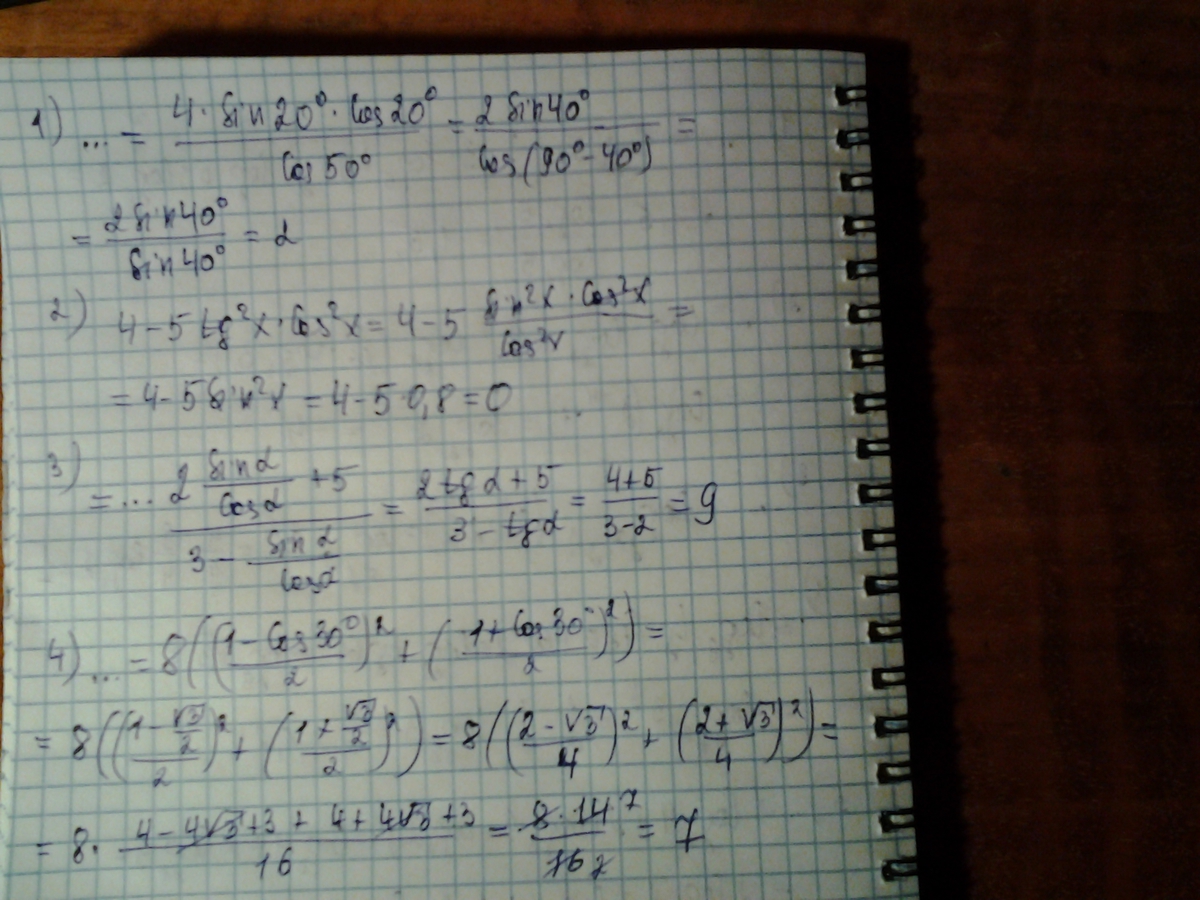 1) ... = (4·sin20°·cos20°)/(cos50°) = (2sin40°)/(cos(90°-40°)) =
= (2sin40°)/(sin40°) = 2
2) 4-5tg²x·cos²x = 4-5 (sin²x·cos²x)/(cos²x) =
= 4-5sin²x = 4-5·0,8 = 0
3) = ... (2 (sinα)/(cosα) + 5)/(3 - (sinα)/(cosα)) = (2tgα+5)/(3-tgα) = (4+5)/(3-2) = 9
4) ... = 8(((1-cos30°)/2)² + ((1+cos30°)/2)²) =
= 8(((1-√3/2)/2)² + ((1+√3/2)/2)²) = 8(((2-√3)/4)² + ((2+√3)/4)²) =
= 8· (4-4√3+3+4+4√3+3)/16 = (8·14 7)/(16 2) = 7